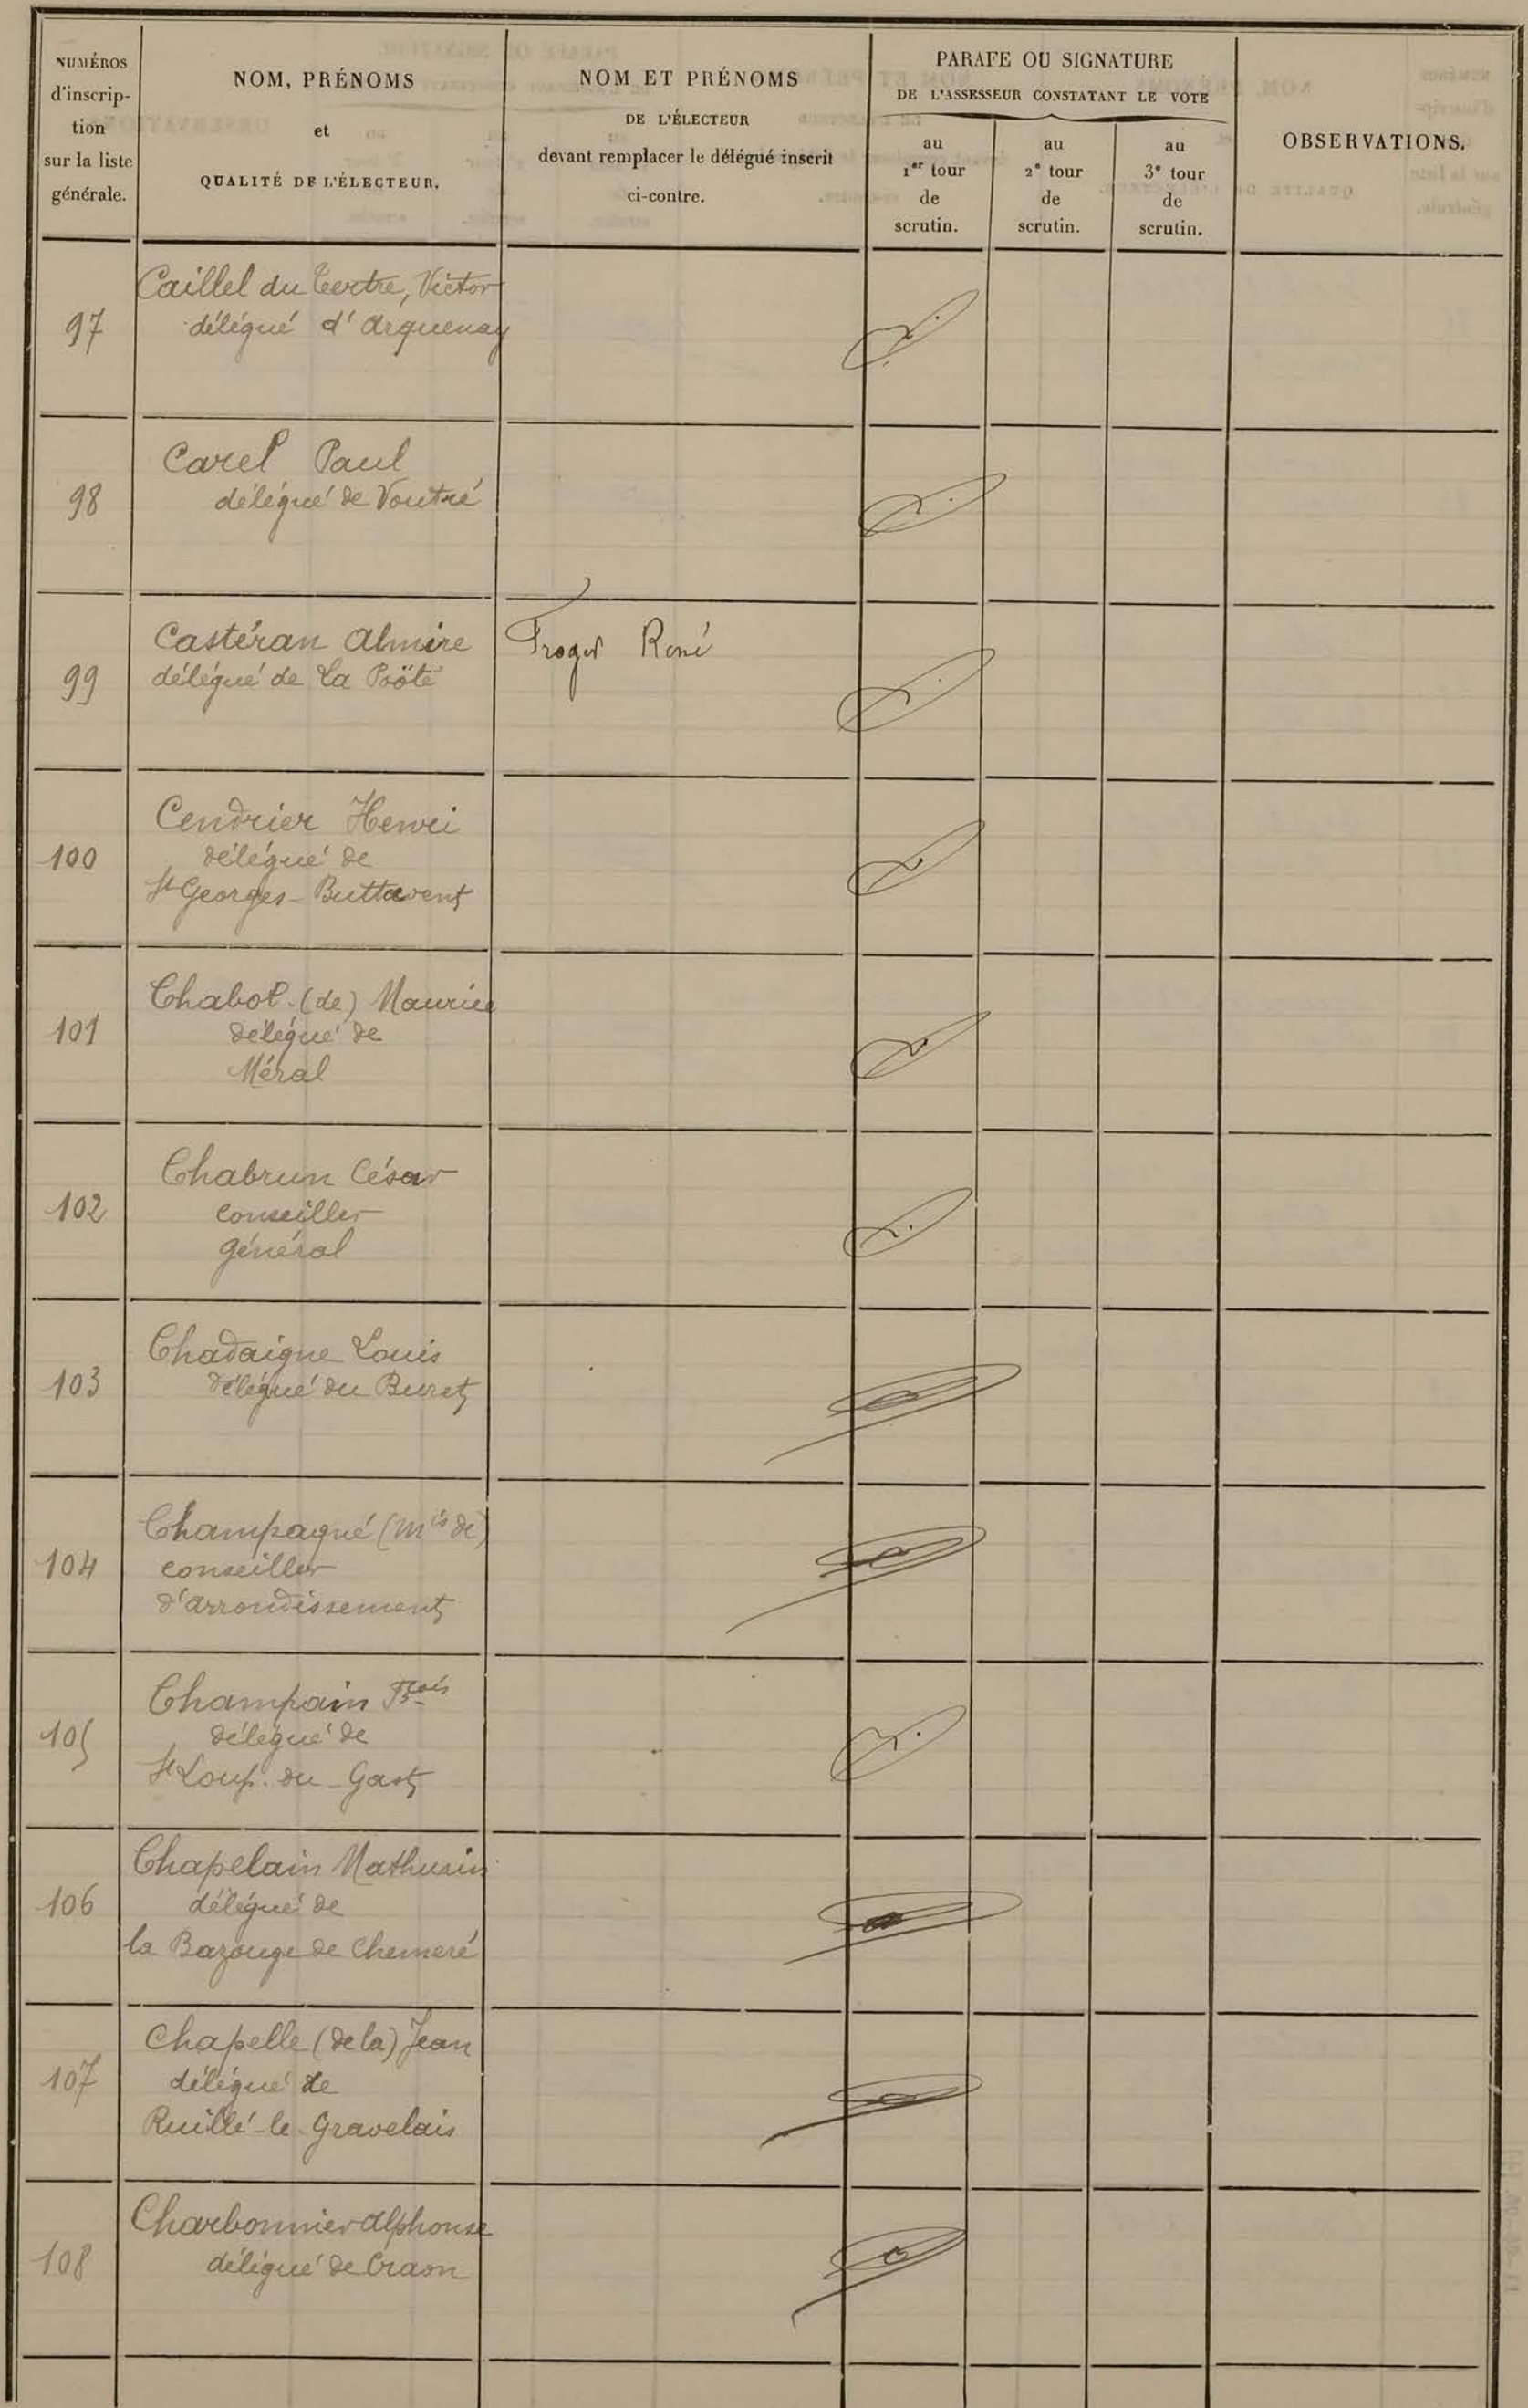 NUMÉROS
d'inscrip-
tion
sur la liste
générale.
NOM, PRÉNOMS
et
QUALITÉ DE L'ÉLECTEUR.
NOM ET PRÉNOMS
DE L'ÉLECTEUR
devant remplacer le délégué inscrit
ci-contre.
PARAFE OU SIGNATURE
DE L'ASSESSEUR CONSTATANT LE VOTE
au
1er tour
de
scrutin.
au
2e tour
de
scrutin.
au
3e tour
de
scrutin.
OBSERVATIONS.
97
Caillel du Tertre, Victor
délégué d'Arquenay
98
Carel Paul
délégué de Voutré
99
Castéran Almire
délégué de La Poôté
Froger René
100
Cendrier Henri
délégué de
St Georges-Buttavent
101
Chabot (de) Maurice
délégué de
Méral
102
Chabrun César
conseiller
général
103
Chadaigne Louis
délégué du Buret
104
Champagné (Mis de)
conseiller
d'arrondissement
105
Champain Fçois
délégué de
St Loup-du-Gast
106
Chapelain Mathurin
délégué de
la Bazouge de Chemeré
107
Chapelle (de la) Jean
délégué de
Ruillé-le-Gravelais
108
Charbonnier Alphonse
délégué de Craon